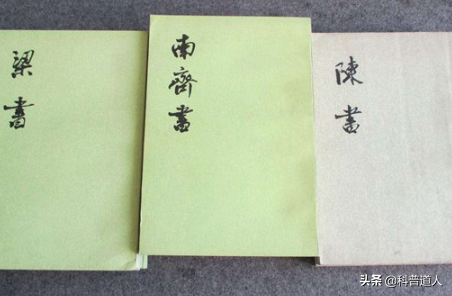 梁书
南齊書
陳書
头条 @科普道人